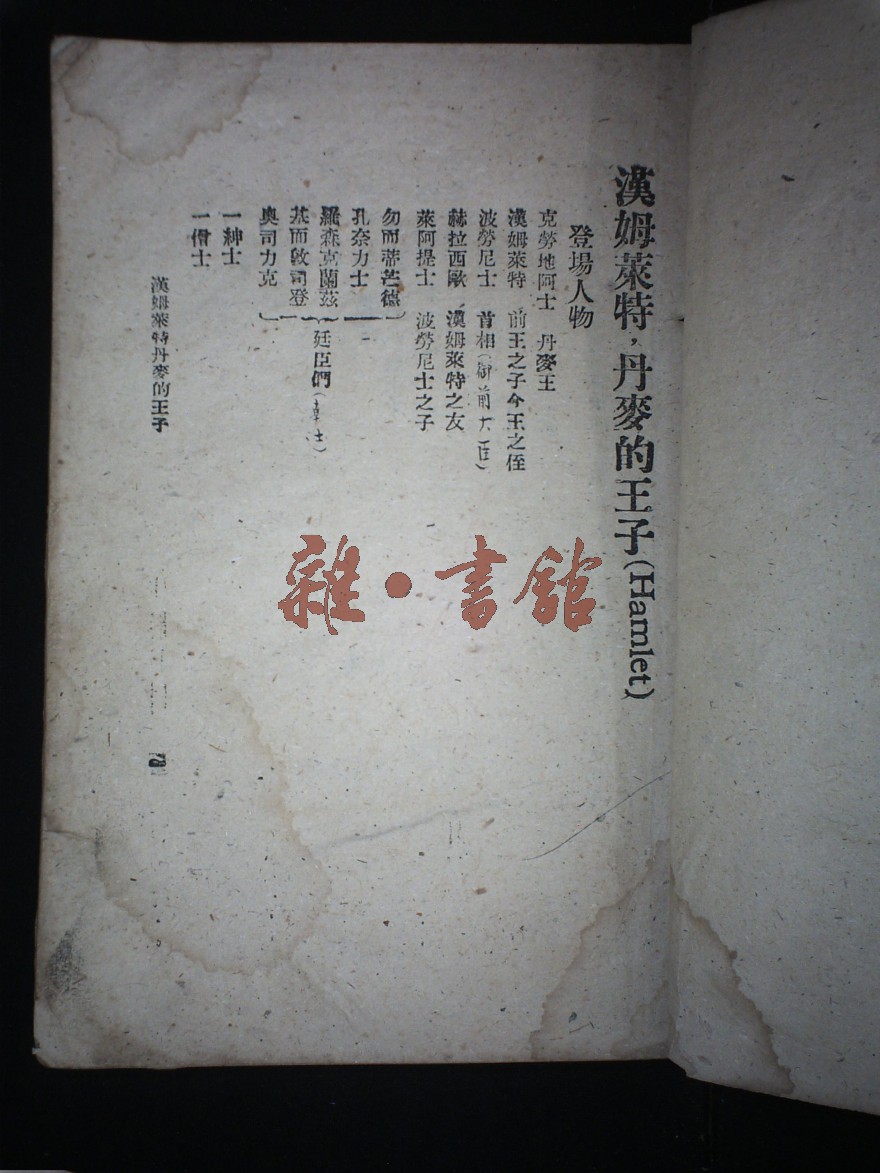 漢姆萊特，丹麥的王子(Hamlet)
登場人物
克勞地阿士　丹麥王
漢姆萊特　前王之子今王之侄
波勞尼士　首相(御前大臣)
赫拉西歐　漢姆萊特之友
萊阿提士　波勞尼士之子
勿而蒂芒德
孔奈力士
羅森克蘭茲
基而敦司登
奧司力克
廷臣們
一紳士
一僧士
漢姆萊特丹麥的王子
雜·書館